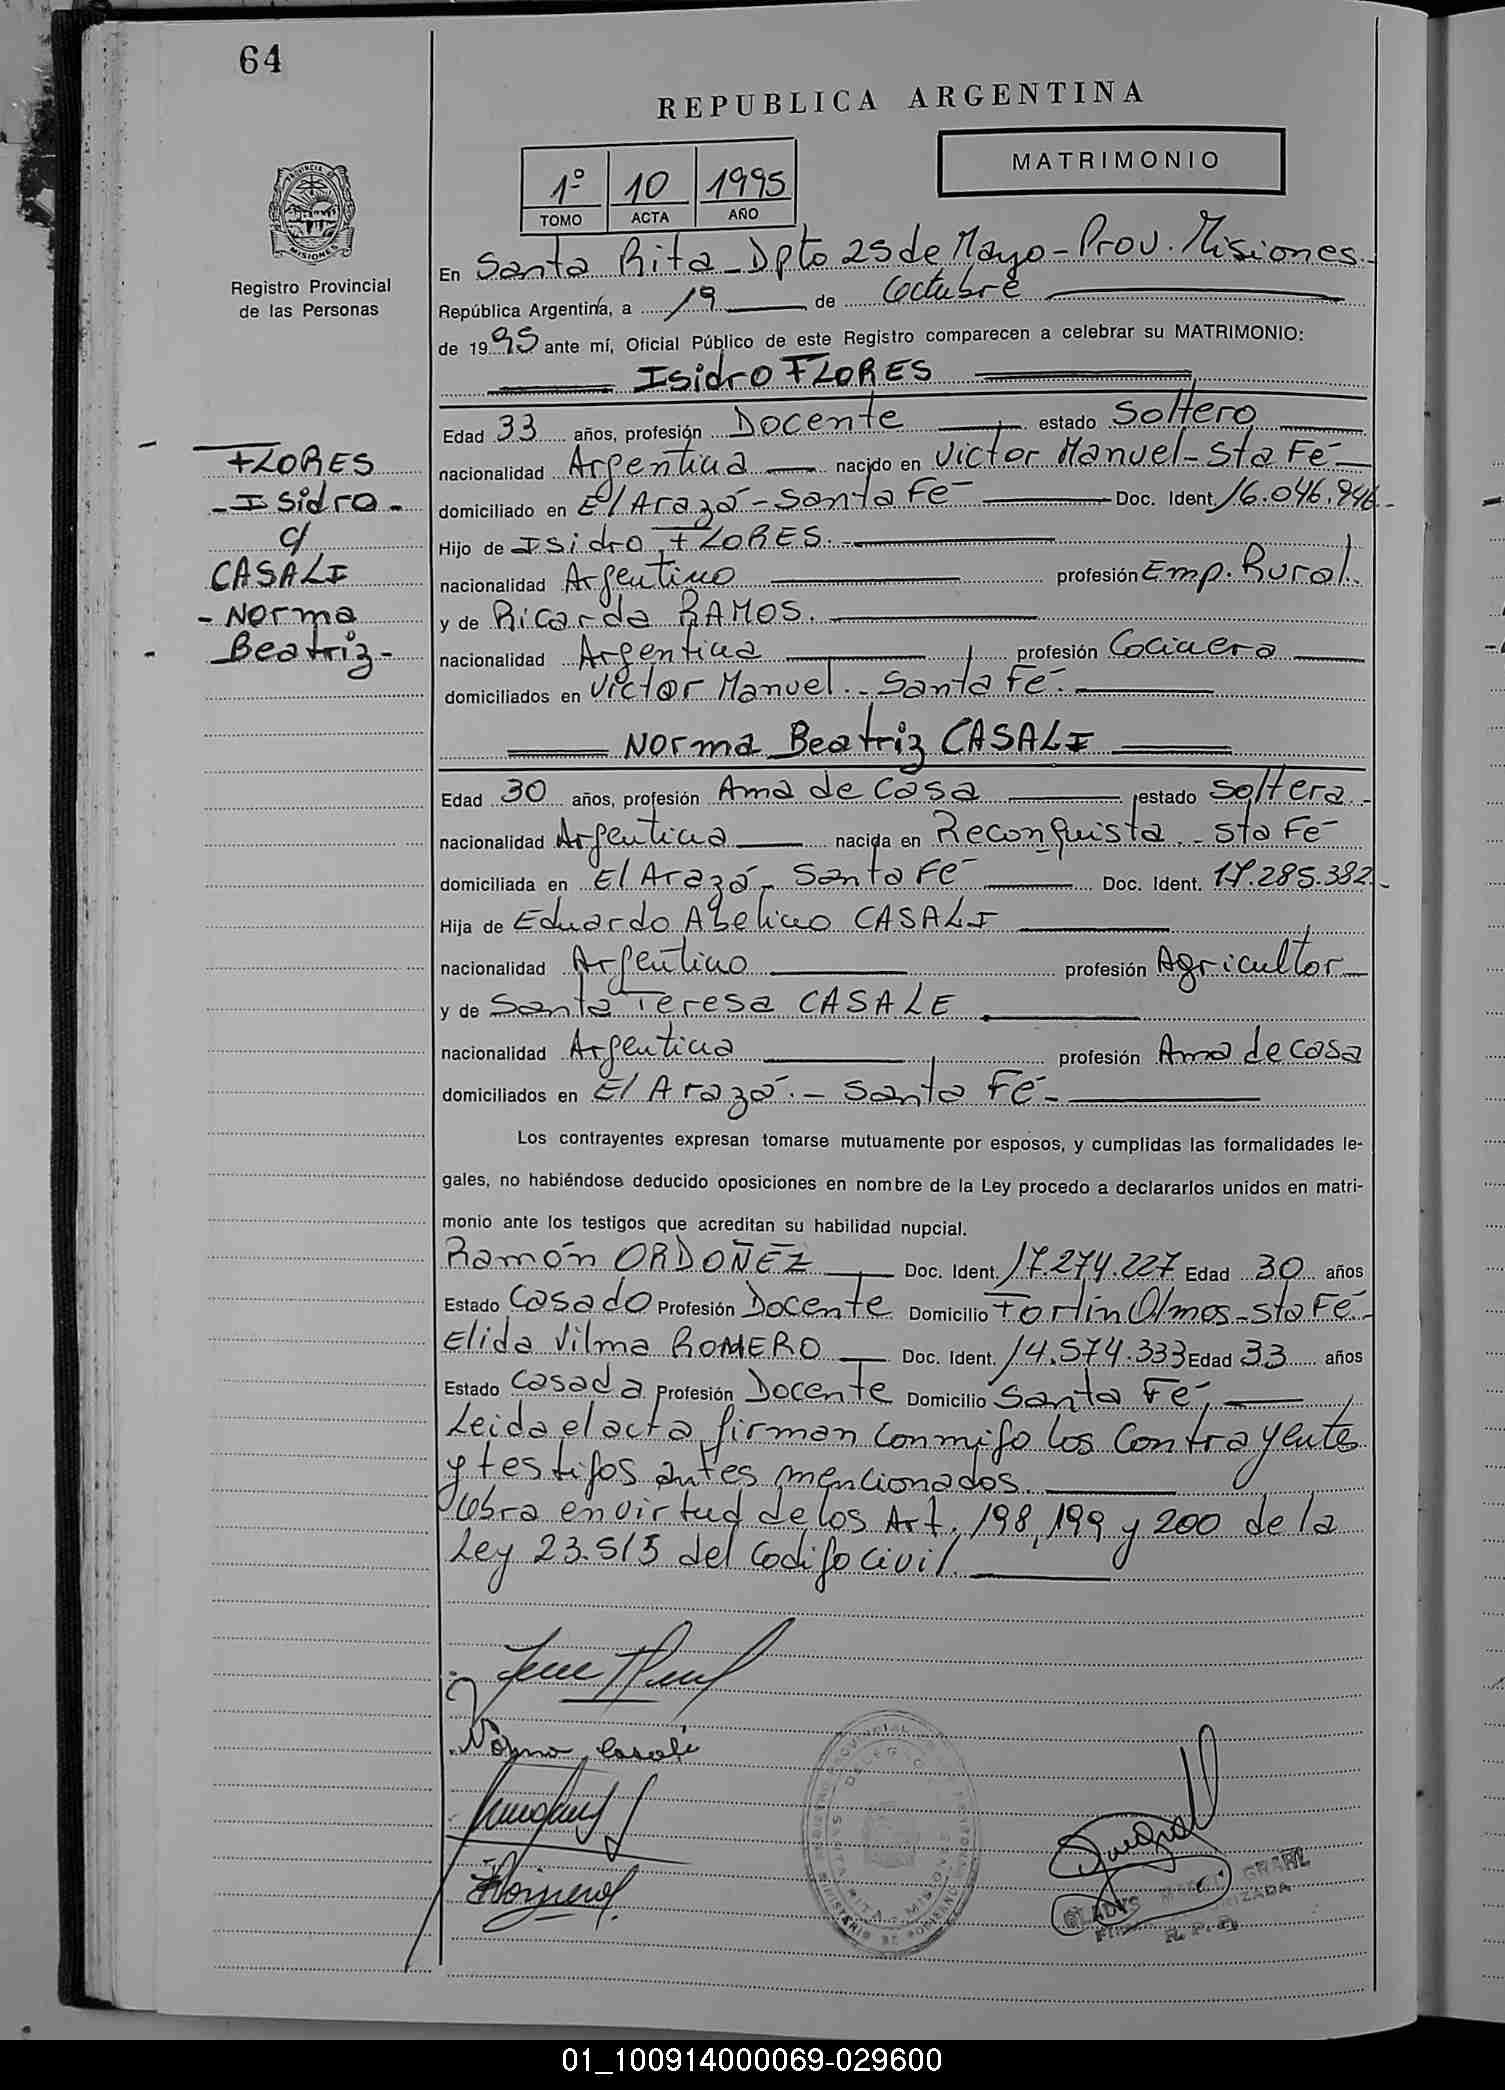 64
REPUBLICA ARGENTINA
MATRIMONIO
1º 10 1995
TOMO ACTA AÑO
PROVINCIA DE
MISIONES
Registro Provincial
de las Personas
En Santa Rita - Dpto 25 de Mayo - Prov. Misiones -
República Argentina, a 19 de Octubre
de 1995 ante mí, Oficial Público de este Registro comparecen a celebrar su MATRIMONIO:
Isidro FLORES
Edad 33 años, profesión Docente estado Soltero
nacionalidad Argentina nacido en Victor Manuel - Sta Fé
domiciliado en El Arazá - Santa Fé Doc. Ident. 16.046.946 -
Hijo de Isidro FLORES.
nacionalidad Argentino profesión Emp. Rural.
y de Ricarda RAMOS.
nacionalidad Argentina profesión Cocinera
domiciliados en Victor Manuel. - Santa Fé -
FLORES
- Isidro -
c/
CASALI
- Norma
Beatriz -
Norma Beatriz CASALI
Edad 30 años, profesión Ama de casa estado soltera -
nacionalidad Argentina nacida en Reconquista - Sta Fé
domiciliada en El Arazá - Santa Fé Doc. Ident. 17.285.382 -
Hija de Eduardo Abelino CASALI
nacionalidad Argentino profesión Agricultor
y de Santa Teresa CASALE
nacionalidad Argentina profesión Ama de casa
domiciliados en El Arazá. - Santa Fé -
Los contrayentes expresan tomarse mutuamente por esposos, y cumplidas las formalidades le-
gales, no habiéndose deducido oposiciones en nombre de la Ley procedo a declararlos unidos en matri-
monio ante los testigos que acreditan su habilidad nupcial.
Ramón ORDOÑEZ Doc. Ident. 17.274.227 Edad 30 años
Estado Casado Profesión Docente Domicilio Fortín Olmos - Sta Fé -
Elida Vilma ROMERO Doc. Ident. 14.574.333 Edad 33 años
Estado Casada Profesión Docente Domicilio Santa Fé,
Leida el acta, firman conmigo los contrayentes
y testigos antes mencionados.
Obra en virtud de los Art. 198, 199 y 200 de la
Ley 23.515 del Codigo Civil.
Norma Casali
ERomero
DELEG
SANTA RITA - MISIONES
MINISTERIO DE GOBIERNO
GLADYS GRAHL
R. P. P.
01_100914000069-029600